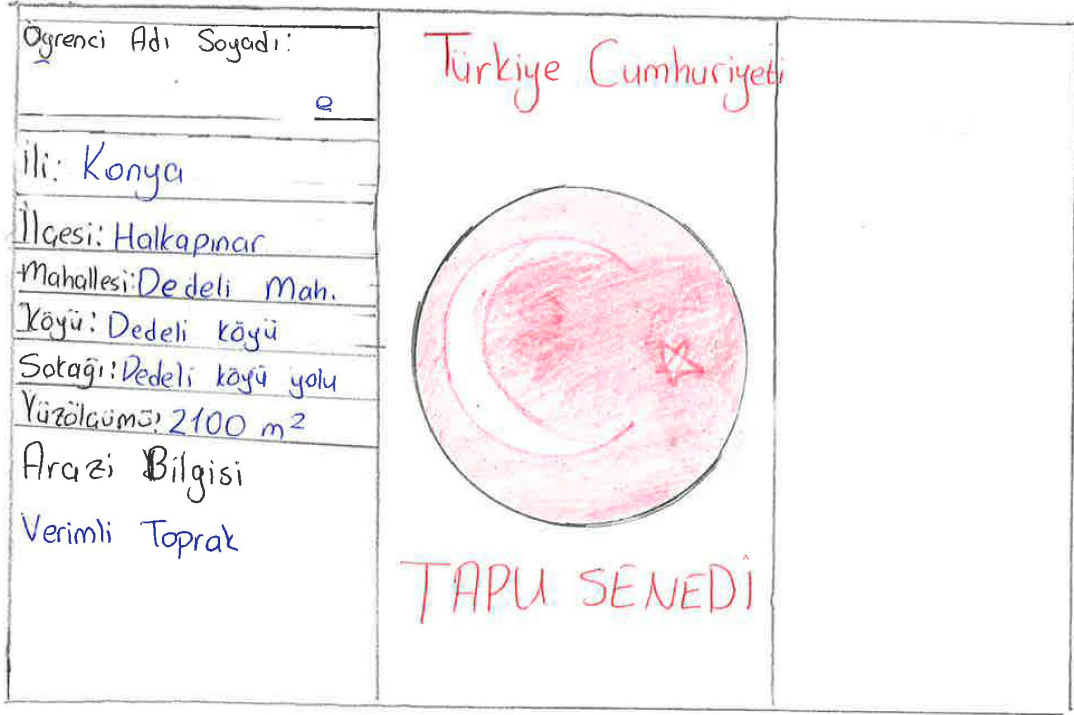 Öğrenci Adı Soyadı:
e
İli: Konya
İlçesi: Halkapınar
Mahallesi: Dedeli Mah.
Köyü: Dedeli köyü
Sokağı: Dedeli köyü yolu
Yüzölçümü: 2100 m²
Arazi Bilgisi
Verimli Toprak
Türkiye Cumhuriyeti
TAPU SENEDİ